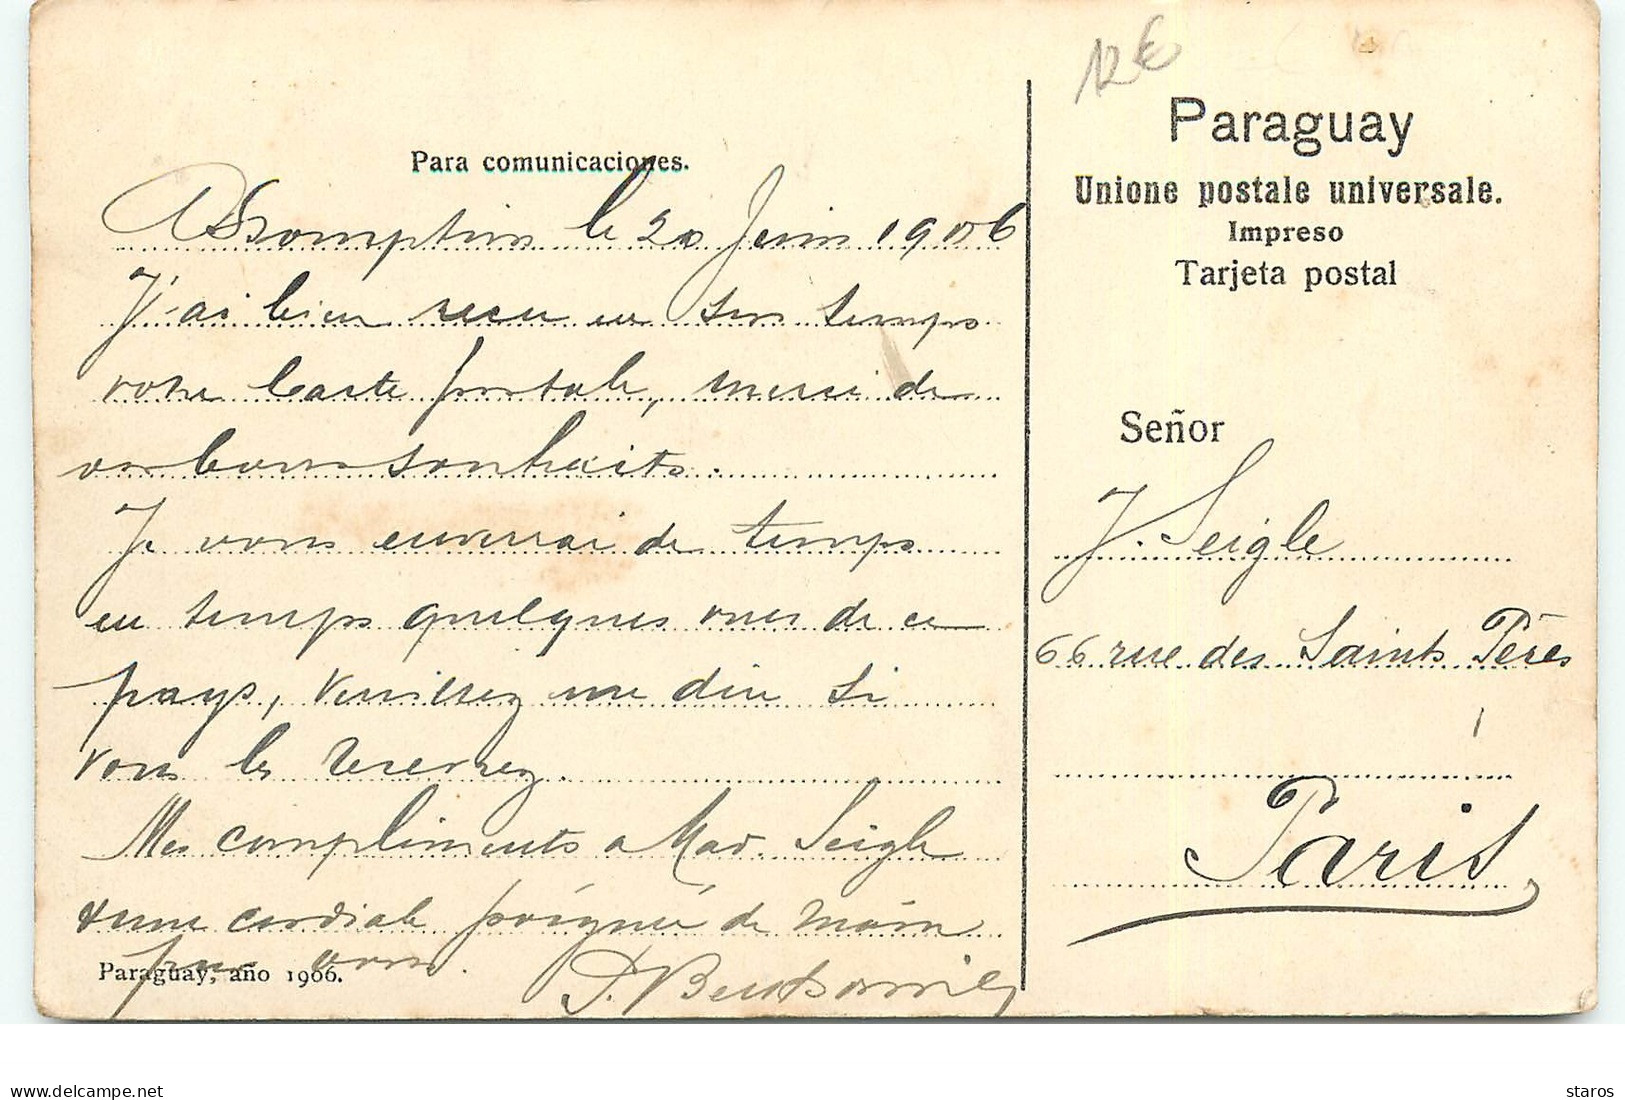 12€
Para comunicaciones.
Assomption le 20 Juin 1906
J'ai bien recu en son temps
votre Carte postale, merci de
vos bons souhaits.
Je vous enverrai de temps
en temps quelques vues de ce
pays, veuillez me dire si
vous les recevez.
Mes compliments a Mad. Seigle
& une cordiale poignée de main
pour vous.
Paraguay, año 1906.
Paraguay
Unione postale universale.
Impreso
Tarjeta postal
Señor
J. Seigle
66 rue des Saints Pères
Paris
delcampe.net
staros